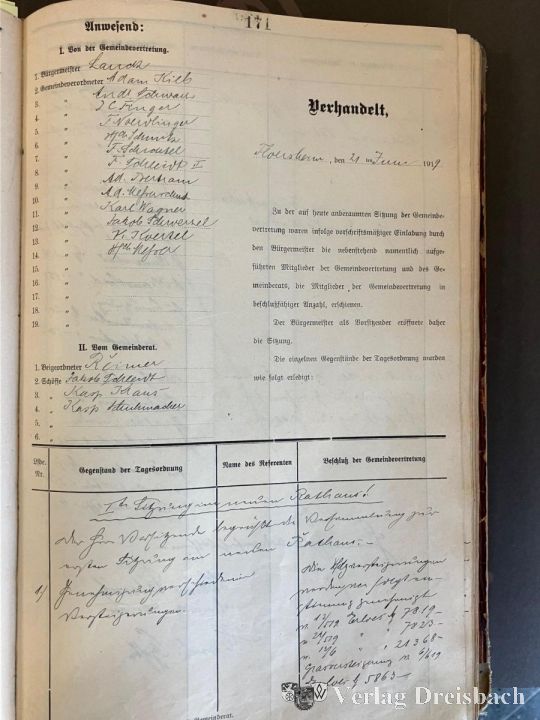 171
Anwesend:
I. Von der Gemeindevertretung.
1. Bürgermeister Lauck
2. Gemeindeverordneter Adam Kieb
3. " Andr. Schwarz
4. " J C Finger
5. " F Noerdlinger
6. "
7. " F. Schrodel
8. " F. Schleidt II
9. " Ad. Bertram
10. " Ad.
11. " Karl Wagner
12. " Jakob Schwerzel
13. " K. Hoerdel
14. " Messer
15. "
16. "
17. "
18. "
19. "
II. Vom Gemeinderat.
1. Beigeordneter Reimer
2. Schöffe Jakob Schleidt
3. " Kasp Kraus
4. " Kasp Schuhmacher
5. "
6. "
Verhandelt,
Floersheim, den 21 ten Juni 1919
Zu der auf heute anberaumten Sitzung der Gemeinde-
vertretung waren infolge vorschriftsmäßiger Einladung durch
den Bürgermeister die nebenstehend namentlich aufge-
führten Mitglieder der Gemeindevertretung und des Ge-
meinderats, die Mitglieder der Gemeindevertretung in
beschlußfähiger Anzahl, erschienen.
Der Bürgermeister als Vorsitzender eröffnete daher
die Sitzung.
Die einzelnen Gegenstände der Tagesordnung wurden
wie folgt erledigt:
Lfde. Nr.
Gegenstand der Tagesordnung
Name des Referenten
Beschluß der Gemeindevertretung
Ite Sitzung im neuen Rathaus!
Der Herr Vorsitzende begrüßt die Versammlung zur
ersten Sitzung am neuen Rathaus. -
1) Genehmigung verschiedener
Versteigerungen.
Die Holzversteigerungen
werden
genehmigt
v. 17/5 19 Erlös M 7819 -
v. 21/5 19 " " 7823 -
v. 10/6 " " 21368 -
Grasversteigerung v. 6/6 19
Erlös M 5863 -
Verlag Dreisbach